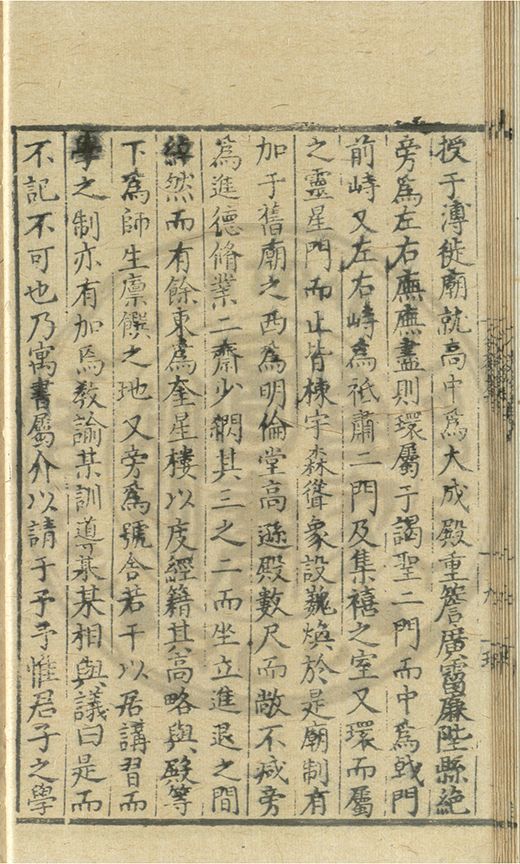 授于溥徙廟就高中爲大成殿重簷廣霤廉陛縣絶
旁爲左右廡廡盡則環屬于謁聖二門而中爲㦸門
前峙又左右峙爲祗肅二門及集禧之室又環而屬
之靈星門而止皆棟宇森聳象設巍煥於是廟制有
加于舊廟之西爲明倫堂高遜殿數尺而敞不减旁
爲進德脩業二齋少綱其三之二而坐立進退之間
綽然而有餘東爲奎星樓以庋經籍其高略與殿等
下爲師生廪饌之地又旁爲號舍若干以居講習而
學之制亦有加焉教諭某訓導某某相與議曰是而
不記不可也乃寓書屬介以請于予予惟君子之學